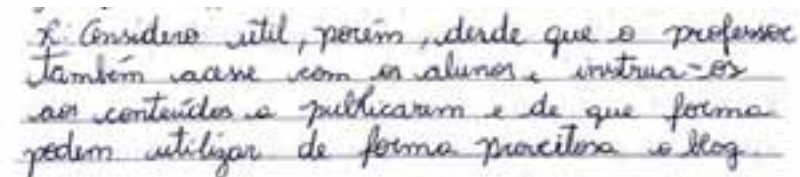 R: Considero útil, porém, desde que o professor
também acesse com os alunos e instrua-os
aos conteúdos a publicarem e de que forma
podem utilizar de forma proveitosa o blog.